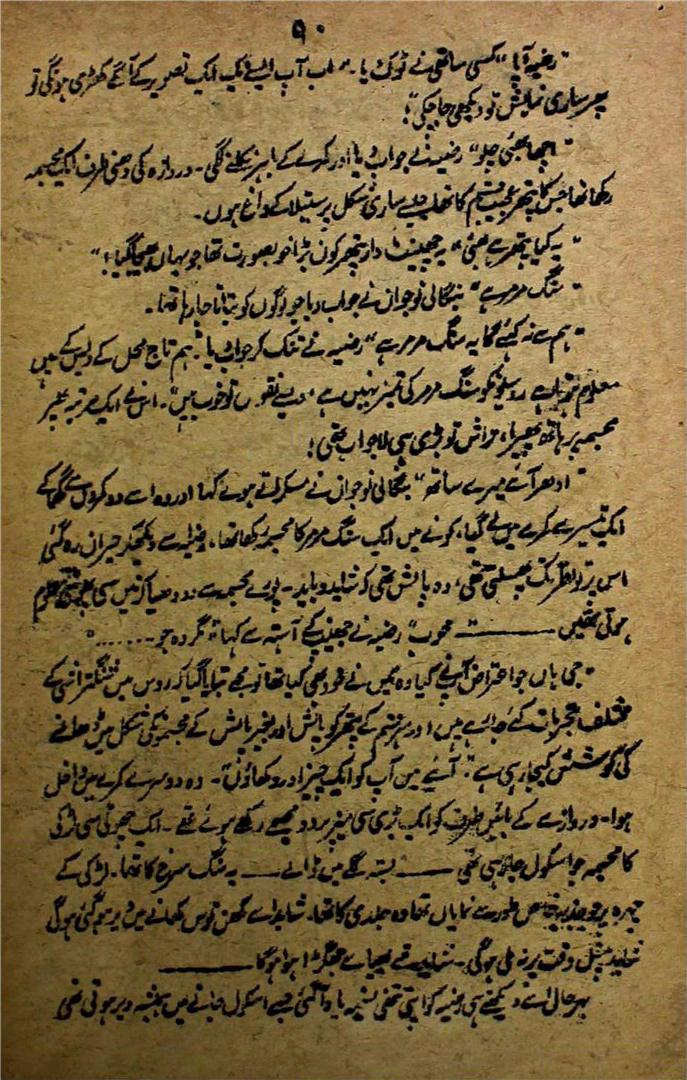 ۹۰
"رضیہ آپا" کسی ساتھی نے ٹوک دیا۔ "اب آپ ایسے ایک ایک تصویر کے آگے کھڑی ہونگی تو
پھر ساری نمایش تو دیکھی جا چکی"!
"اچھا بھئی چلو" رضیہ نے جواب دیا اور کمرے کے باہر نکلنے لگی۔ دروازہ کی دھنی طرف ایک مجسمہ
رکھا تھا جس کا پتھر عجیب قسم کا تھا جیسے ساری شکل پر سیتلا کے داغ ہوں۔
"یہ کیا پتھر ہے بھئی" یہ چھینٹ دار پتھر کون بڑا خوبصورت تھا جو یہاں
"سنگ مرمر ہے" بنگالی نوجوان نے جواب دیا جو لوگوں کو بتاتا جا رہا تھا۔
"ہم سے نہ کہئے گا یہ سنگ مرمر ہے" رضیہ نے تنک کر جواب دیا "ہم تاج محل کے دیس کے ہیں
معلوم ہوتا ہے روسیوں کو سنگ مرمر کی تمیز نہیں ہے، ویسے نقوش تو خوب ہیں"۔ اس نے ایک مرتبہ پھر
مجسمہ پر ہاتھ پھیرا، تراش تو بڑی ہی لاجواب تھی!
"ادھر آئیے میرے ساتھ" بنگالی نوجوان نے مسکراتے ہوئے کہا اور وہ اسے دو کمروں سے گھما کے
ایک تیسرے کمرے میں لے گیا، کونے میں ایک سنگ مرمر کا مجسمہ رکھا تھا، رضیہ اسے دیکھکر حیران رہ گئی
اس پر تو نظر تک پھسلتی تھی، وہ پالش تھی کہ شاید و باید۔ پورے مجسمہ سے دودھیا کرنیں سی پھوٹتی معلوم
ہوتی تھیں ــــــــ خوب" رضیہ نے جھینپ کے آہستہ سے کہا "مگر وہ جو ۔۔۔۔۔۔۔"
"جی ہاں جو اعتراض آپ نے کیا وہ میں نے خود بھی کیا تھا تو مجھے بتلایا گیا کہ روس میں سنگتراشی کے
مختلف تجربات کئے جا رہے ہیں اور ہر قسم کے پتھر کو پالش اور بغیر پالش کے مجسمہ کی شکل میں ڈھالنے
کی کوشش کیجا رہی ہے"۔ آئیے میں آپ کو ایک چیز اور دکھاؤں"۔ وہ دوسرے کمرے میں داخل
ہوا۔ دروازے کے بائیں طرف کو ایک بڑی سی میز پر دو مجسمے رکھے ہوئے تھے۔ ایک چھوٹی سی لڑکی
کا مجسمہ جو اسکول جا رہی تھی ــــــ بستہ گلے میں ڈالے ــــ یہ سنگ سرخ کا تھا۔ لڑکی کے
چہرہ پر جو جذبہ خاص طور سے نمایاں تھا وہ جلدی کا تھا۔ شاید اسے مکھن توس کھانے میں دیر ہو گئی ہوگی
شاید پنسل وقت پر نہ ملی ہوگی۔ شاید ننھے بھیا سے جھگڑا ہوا ہوگا ــــــــ
بہرحال اسے دیکھتے ہی رضیہ کو اپنی ننھی یاد آ گئی جسے اسکول جانے میں ہمیشہ دیر ہوتی تھی